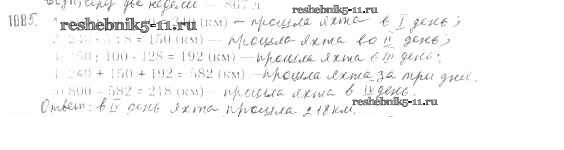 две недели — 867 л
1085. reshebnik5-11.ru (км) — прошла яхта в I день;
= 150 (км) — прошла яхта во II день;
: 100 · 128 = 192 (км) — прошла яхта в III день.
240 + 150 + 192 = 582 (км) — прошла яхта за три дня.
5) 800 - 582 = 218 (км) — прошла яхта в IV день.
reshebnik5-11.ru
reshebnik5-11.ru
Ответ: в IV день яхта прошла 218 км.
reshebnik5-11.ru